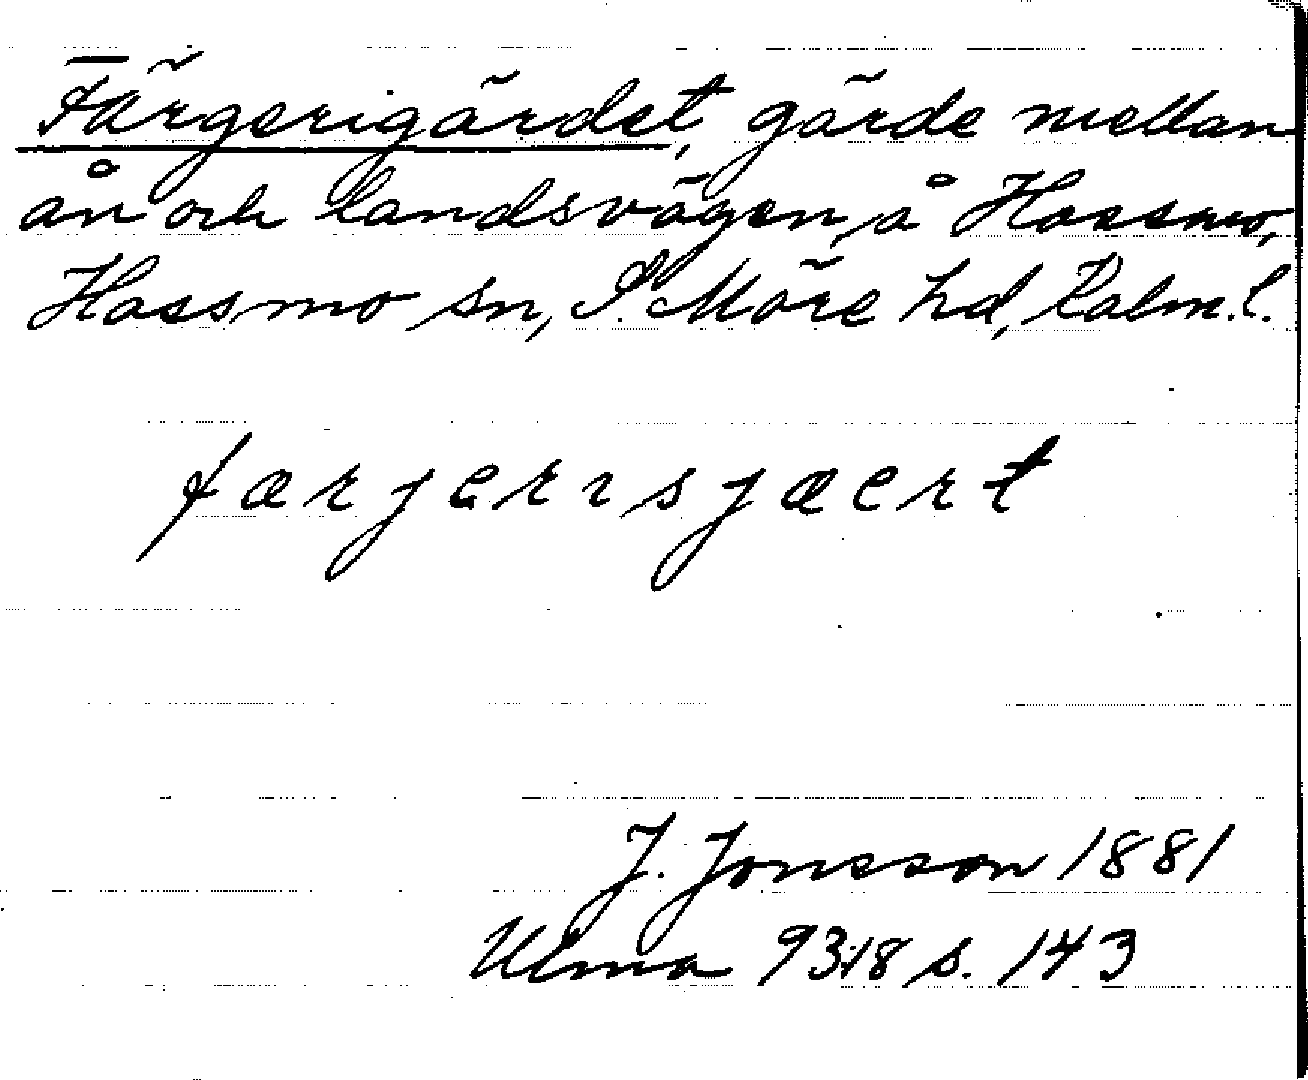 Färgerigärdet, gärde mellan
ån och landsvägen, å Hassmo,
Hassmo sn, S. Möre hd, Kalm. l.
færjerısjæert
J. Jonsson 1881
Ulma 93:18 s. 143